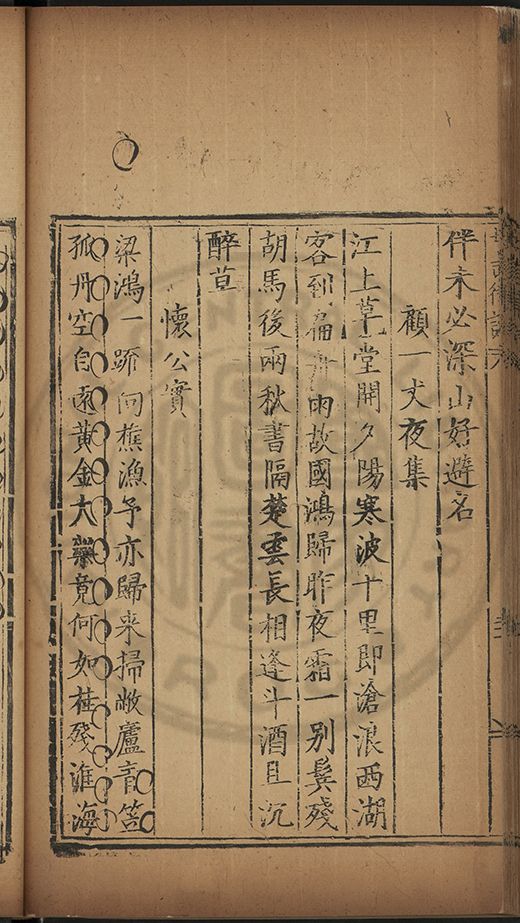 伴未必深山好避名
顧一丈夜集
江上草堂開夕陽寒波十里即滄浪西湖
客到扁舟雨故國鴻歸昨夜霜一別鬂殘
胡馬後兩秋書隔楚雲長相逢斗酒且沉
醉草
懷公實
梁鴻一跡向樵漁予亦歸来掃敝廬
孤舟空自遠黃金大藥竟何如枯殘淮海